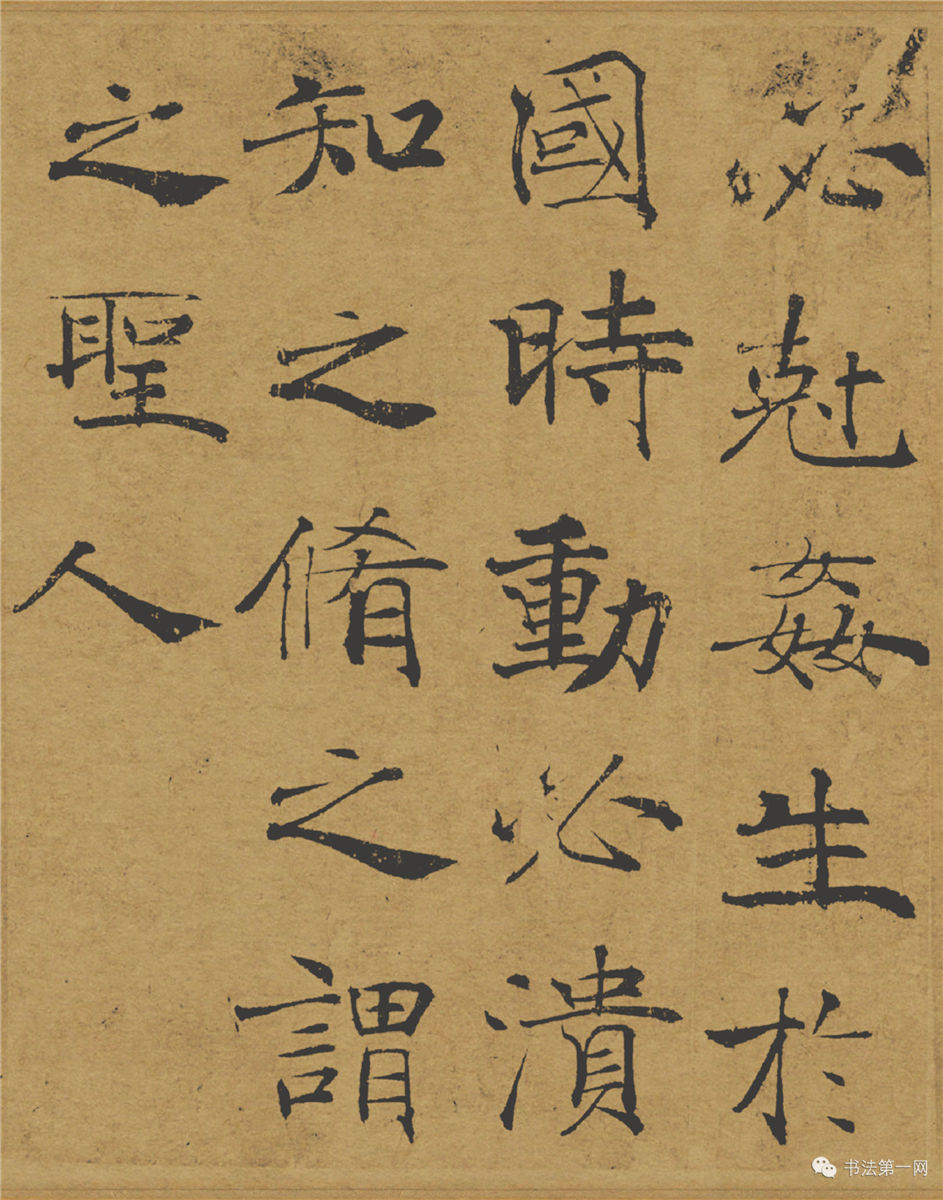 必尅姦生於
國時動必潰
知之脩之謂
之聖人
书法第一网